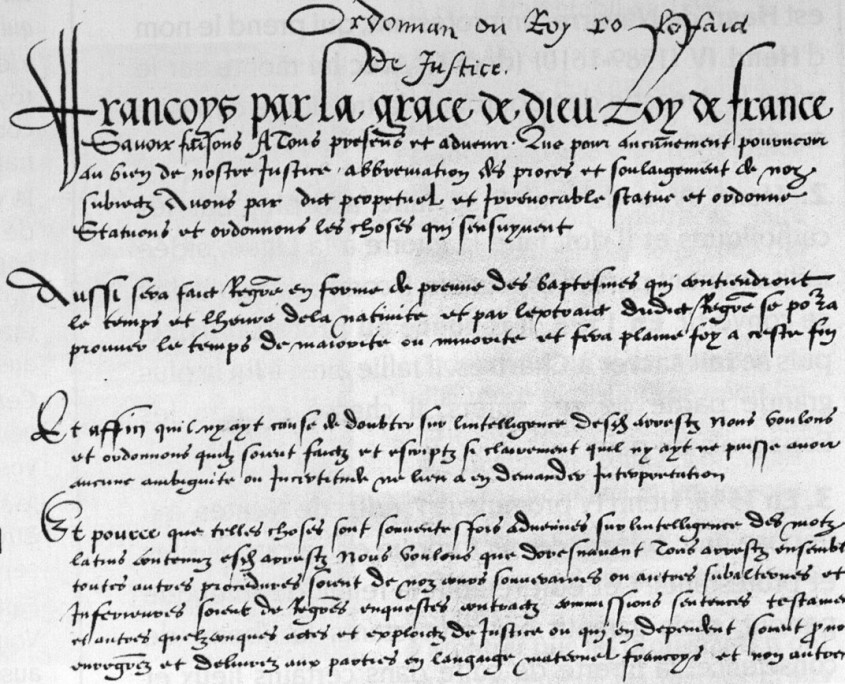 Ordonnan du Roy
de Justice.
Francoys par la grace de dieu Roy de france
Savoir faisons A Tous presens et advenir. Que pour aucunement pourveoir
au bien de nostre Justice. abbreviation des proces et soulaigement de noz
subiectz Avons par dict perpetuel et Irrevocable statue et ordonne
Statuons et ordonnons les choses qui sensuyvent
Aussi sera faict Regre en forme de preuve des baptesmes qui contiendront
le temps et lheure dela nativite et par lextraict dudict Regre se porra
prouver le temps de maiorite ou minorite et fera plaine foy a ceste fin
Et affin quil ny ayt cause de doubter sur lintelligence desd arrestz Nous voulons
et ordonnons quilz soient faictz et escriptz si clairement quil ny ayt ne puisse avoir
aucune ambiguite ou Incertitude ne lieu a en demander Interpretation
Et pource que telles choses sont souventesfois advenues sur lintelligence des motz
latins contenuz esd arrestz Nous voulons que doresnavant Tous arrestz ensembl
toutes autres procedures soient de noz cours souveraines ou autres subalternes et
Inferieures soient de Regres enquestes contractz commissions sentences testame
et autres quelzconques actes et exploictz de Justice ou qui en dependent soient pno
enregrez et delivrez aux parties en langaige maternel francoys et non autre